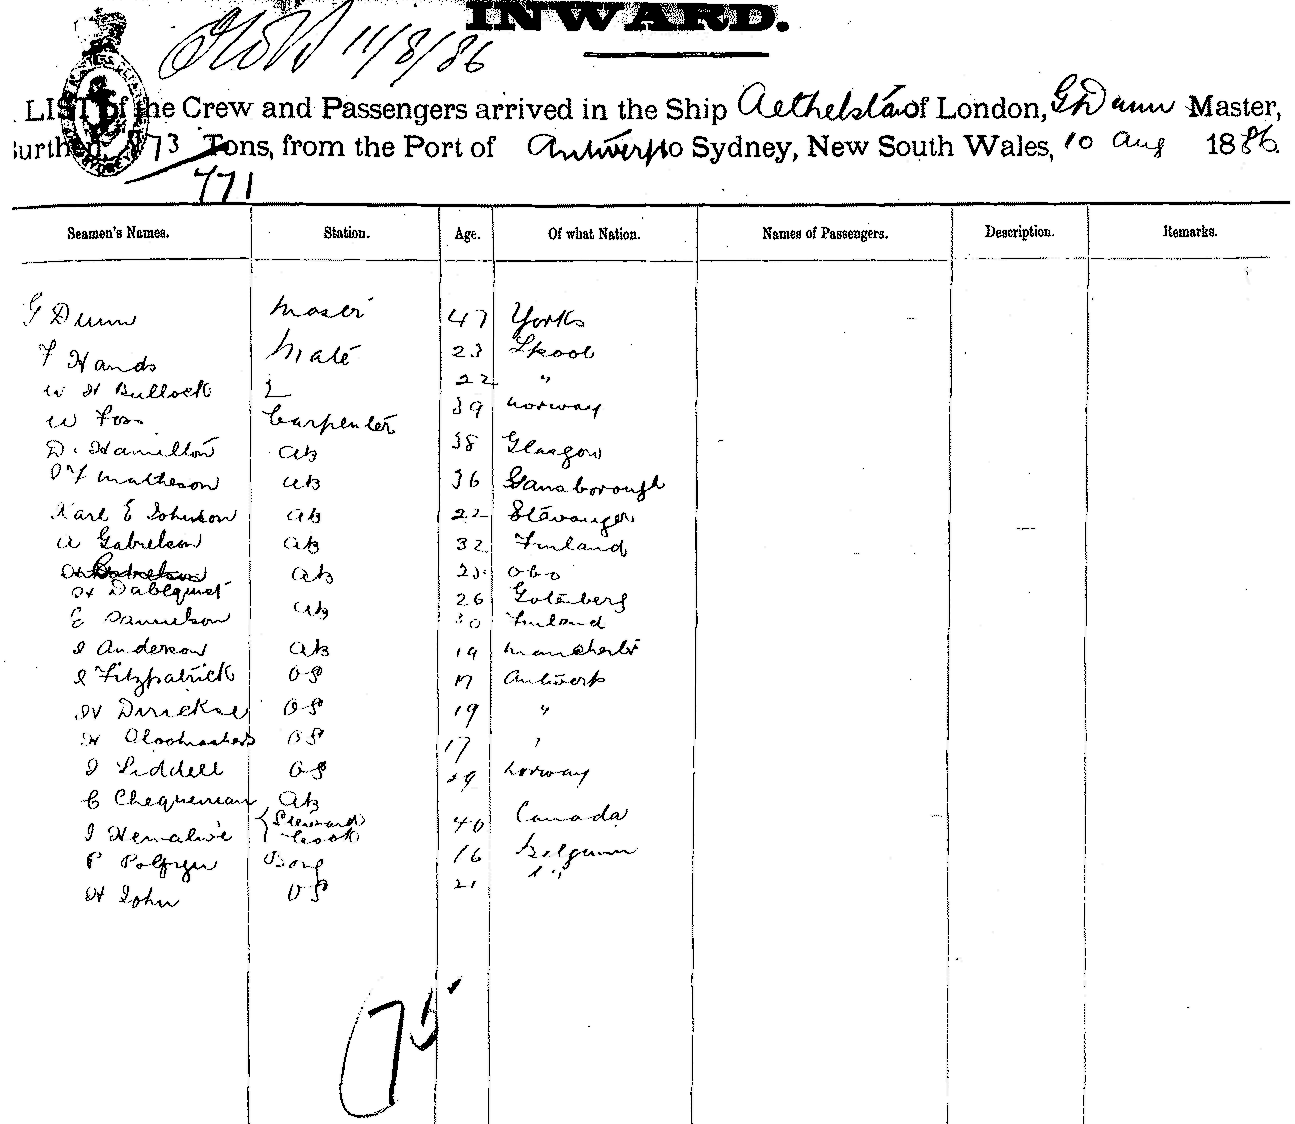 INWARD.
14/8/86
LIST of the Crew and Passengers arrived in the Ship Aethelstan of London, G Dunn Master,
Burthen 773 Tons, from the Port of Antwerp to Sydney, New South Wales, 10 Aug 1886.
771
Seamen's Names. Station. Age. Of what Nation. Names of Passengers. Description. Remarks.
G Dunn Master 47 Yorks
F Hands Mate 23 L'pool
W H Bullock 2 22 "
W Foss Carpenter 39 Norway
D. Hamilton AB 38 Glasgow
Matheson AB 36 Gansborough
Karl E Johnson AB 22 Stavanger
A Gabrelson AB 32 Finland
AB Obo
H Dabequist 26 Gotenberg
E Samuelson AB 30 Finland
J Anderson AB 19 Manchester
J Fitzpatrick OS 17 Antwerp
W Dirickse OS 19 "
H OS 17 "
J Liddell OS 29 Norway
C Chequeman AB
J Steward Cook 40 Canada
P Boy 16 Belgium
H John OS 21 "
75